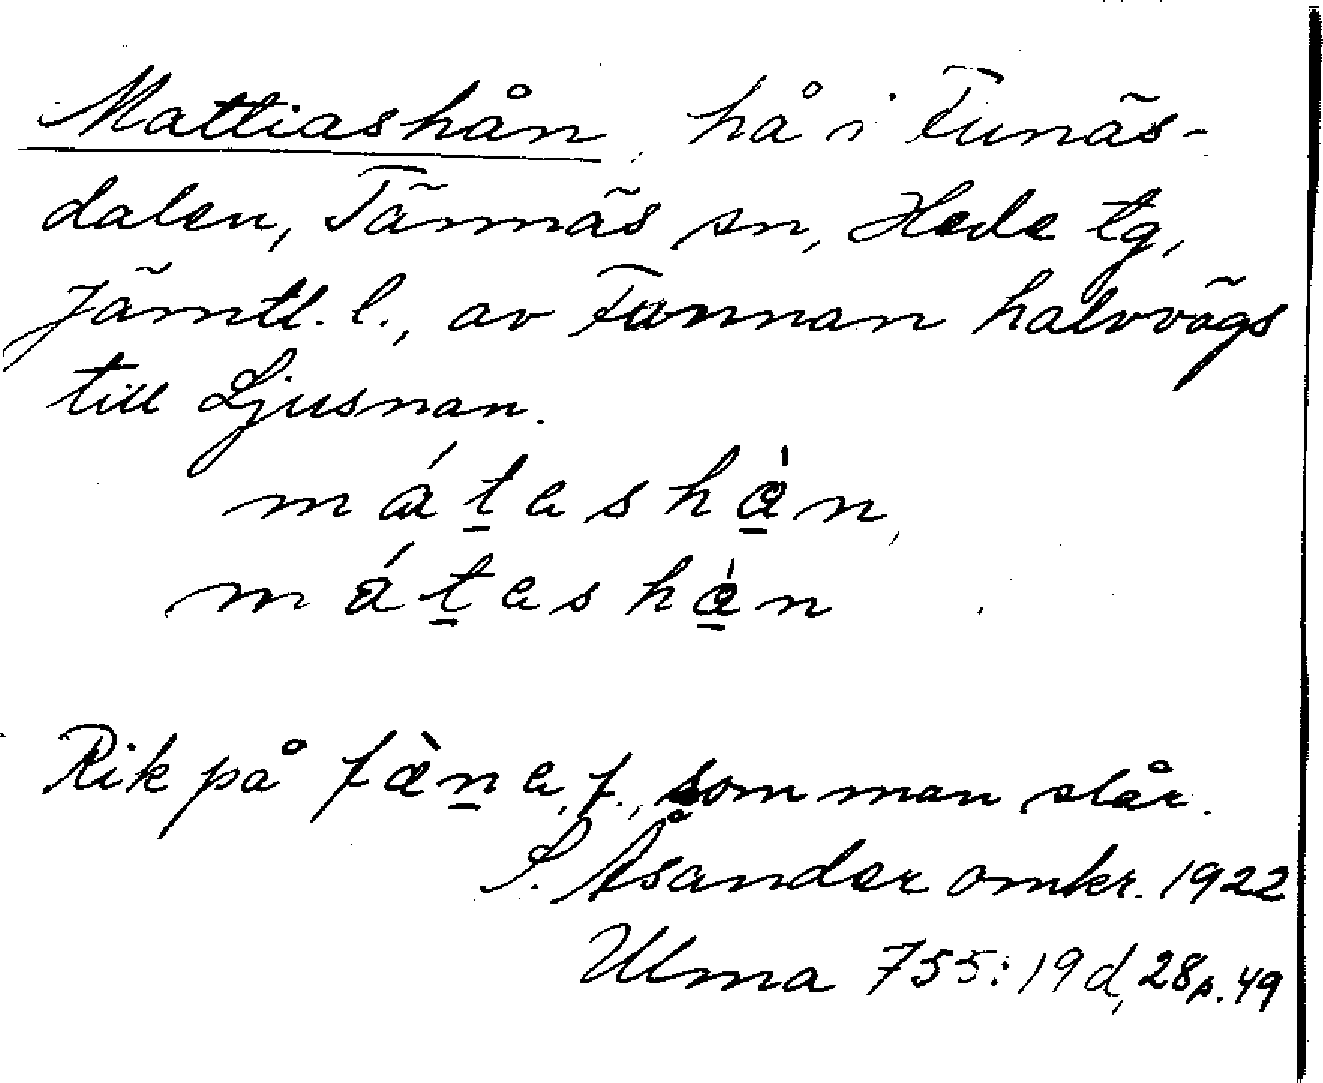 Mattiashån, hå i Funäs-
dalen, Tännäs sn, Hede tg,
Jämtl. l., av Tännan halvvägs
till Ljusnan.
mát̠ashà̠n,
mát̠ashà̠n
Rik på fæ̀n̠a, f., som man slår.
S. Åsander omkr. 1922
Ulma 755:19d, 28 s. 49